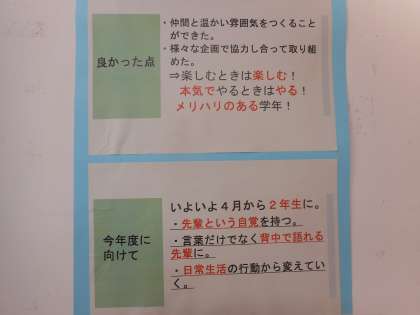 良かった点
・仲間と温かい雰囲気をつくること
ができた。
・様々な企画で協力し合って取り組
めた。
⇒楽しむときは楽しむ！
本気でやるときはやる！
メリハリのある学年！
今年度に
向けて
いよいよ４月から２年生に。
・先輩という自覚を持つ。
・言葉だけでなく背中で語れる
先輩に。
・日常生活の行動から変えてい
く。